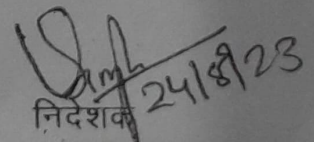 24/8/23
निदेशक